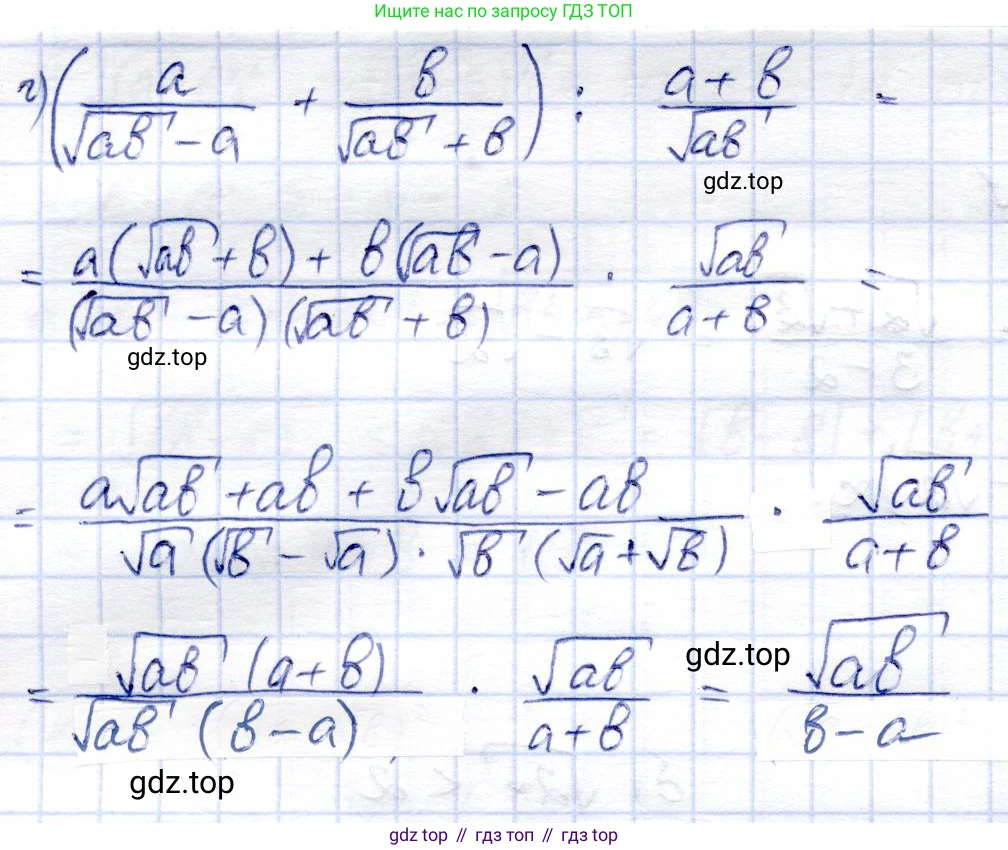 Ищите нас по запросу ГДЗ ТОП
г) (a/(√ab - a) + b/(√ab + b)) : (a + b)/√ab =
gdz.top
= (a(√ab + b) + b(√ab - a))/((√ab - a)(√ab + b)) · √ab/(a + b) =
gdz.top
= (a√ab + ab + b√ab - ab)/(√a(√b - √a) · √b(√a + √b)) · √ab/(a + b)
= (√ab (a + b))/(√ab (b - a)) · √ab/(a + b) = √ab/(b - a)
gdz.top
gdz.top
gdz top // гдз топ // гдз top